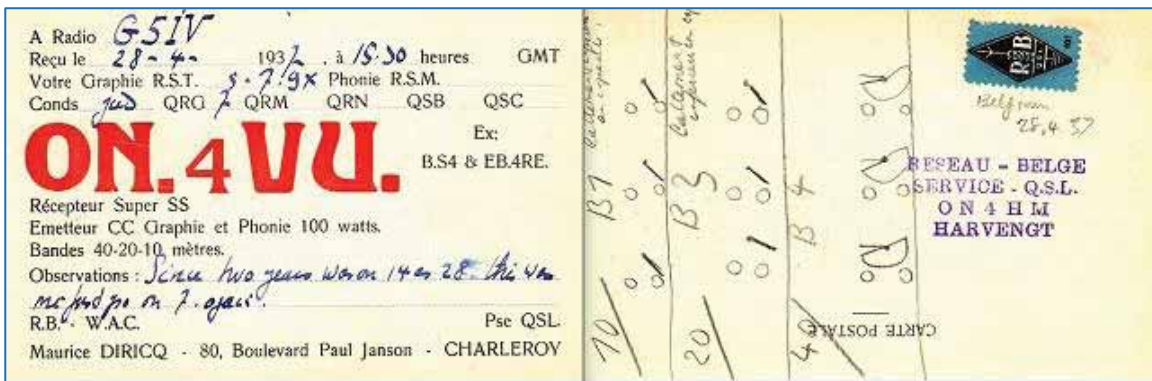 A Radio G5IV
Reçu le 28-4- 1937, à 15.30 heures GMT
Votre Graphie R.S.T. 5-7-9x Phonie R.S.M.
Conds QRG 7 QRM QRN QSB QSC
ON.4VU.
Ex;
B.S4 & EB.4RE.
Récepteur Super SS
Emetteur CC Graphie et Phonie 100 watts.
Bandes 40-20-10 mètres.
Observations: Since two years was on 14 es 28. this was
on 7.
R.B. - W.A.C. Pse QSL.
Maurice DIRICQ - 80, Boulevard Paul Janson - CHARLEROY
10
B1
20
B3
40
B4
CARTE POSTALE
R B
Belgium
28.4.37
RESEAU - BELGE
SERVICE - Q.S.L.
ON4HM
HARVENGT